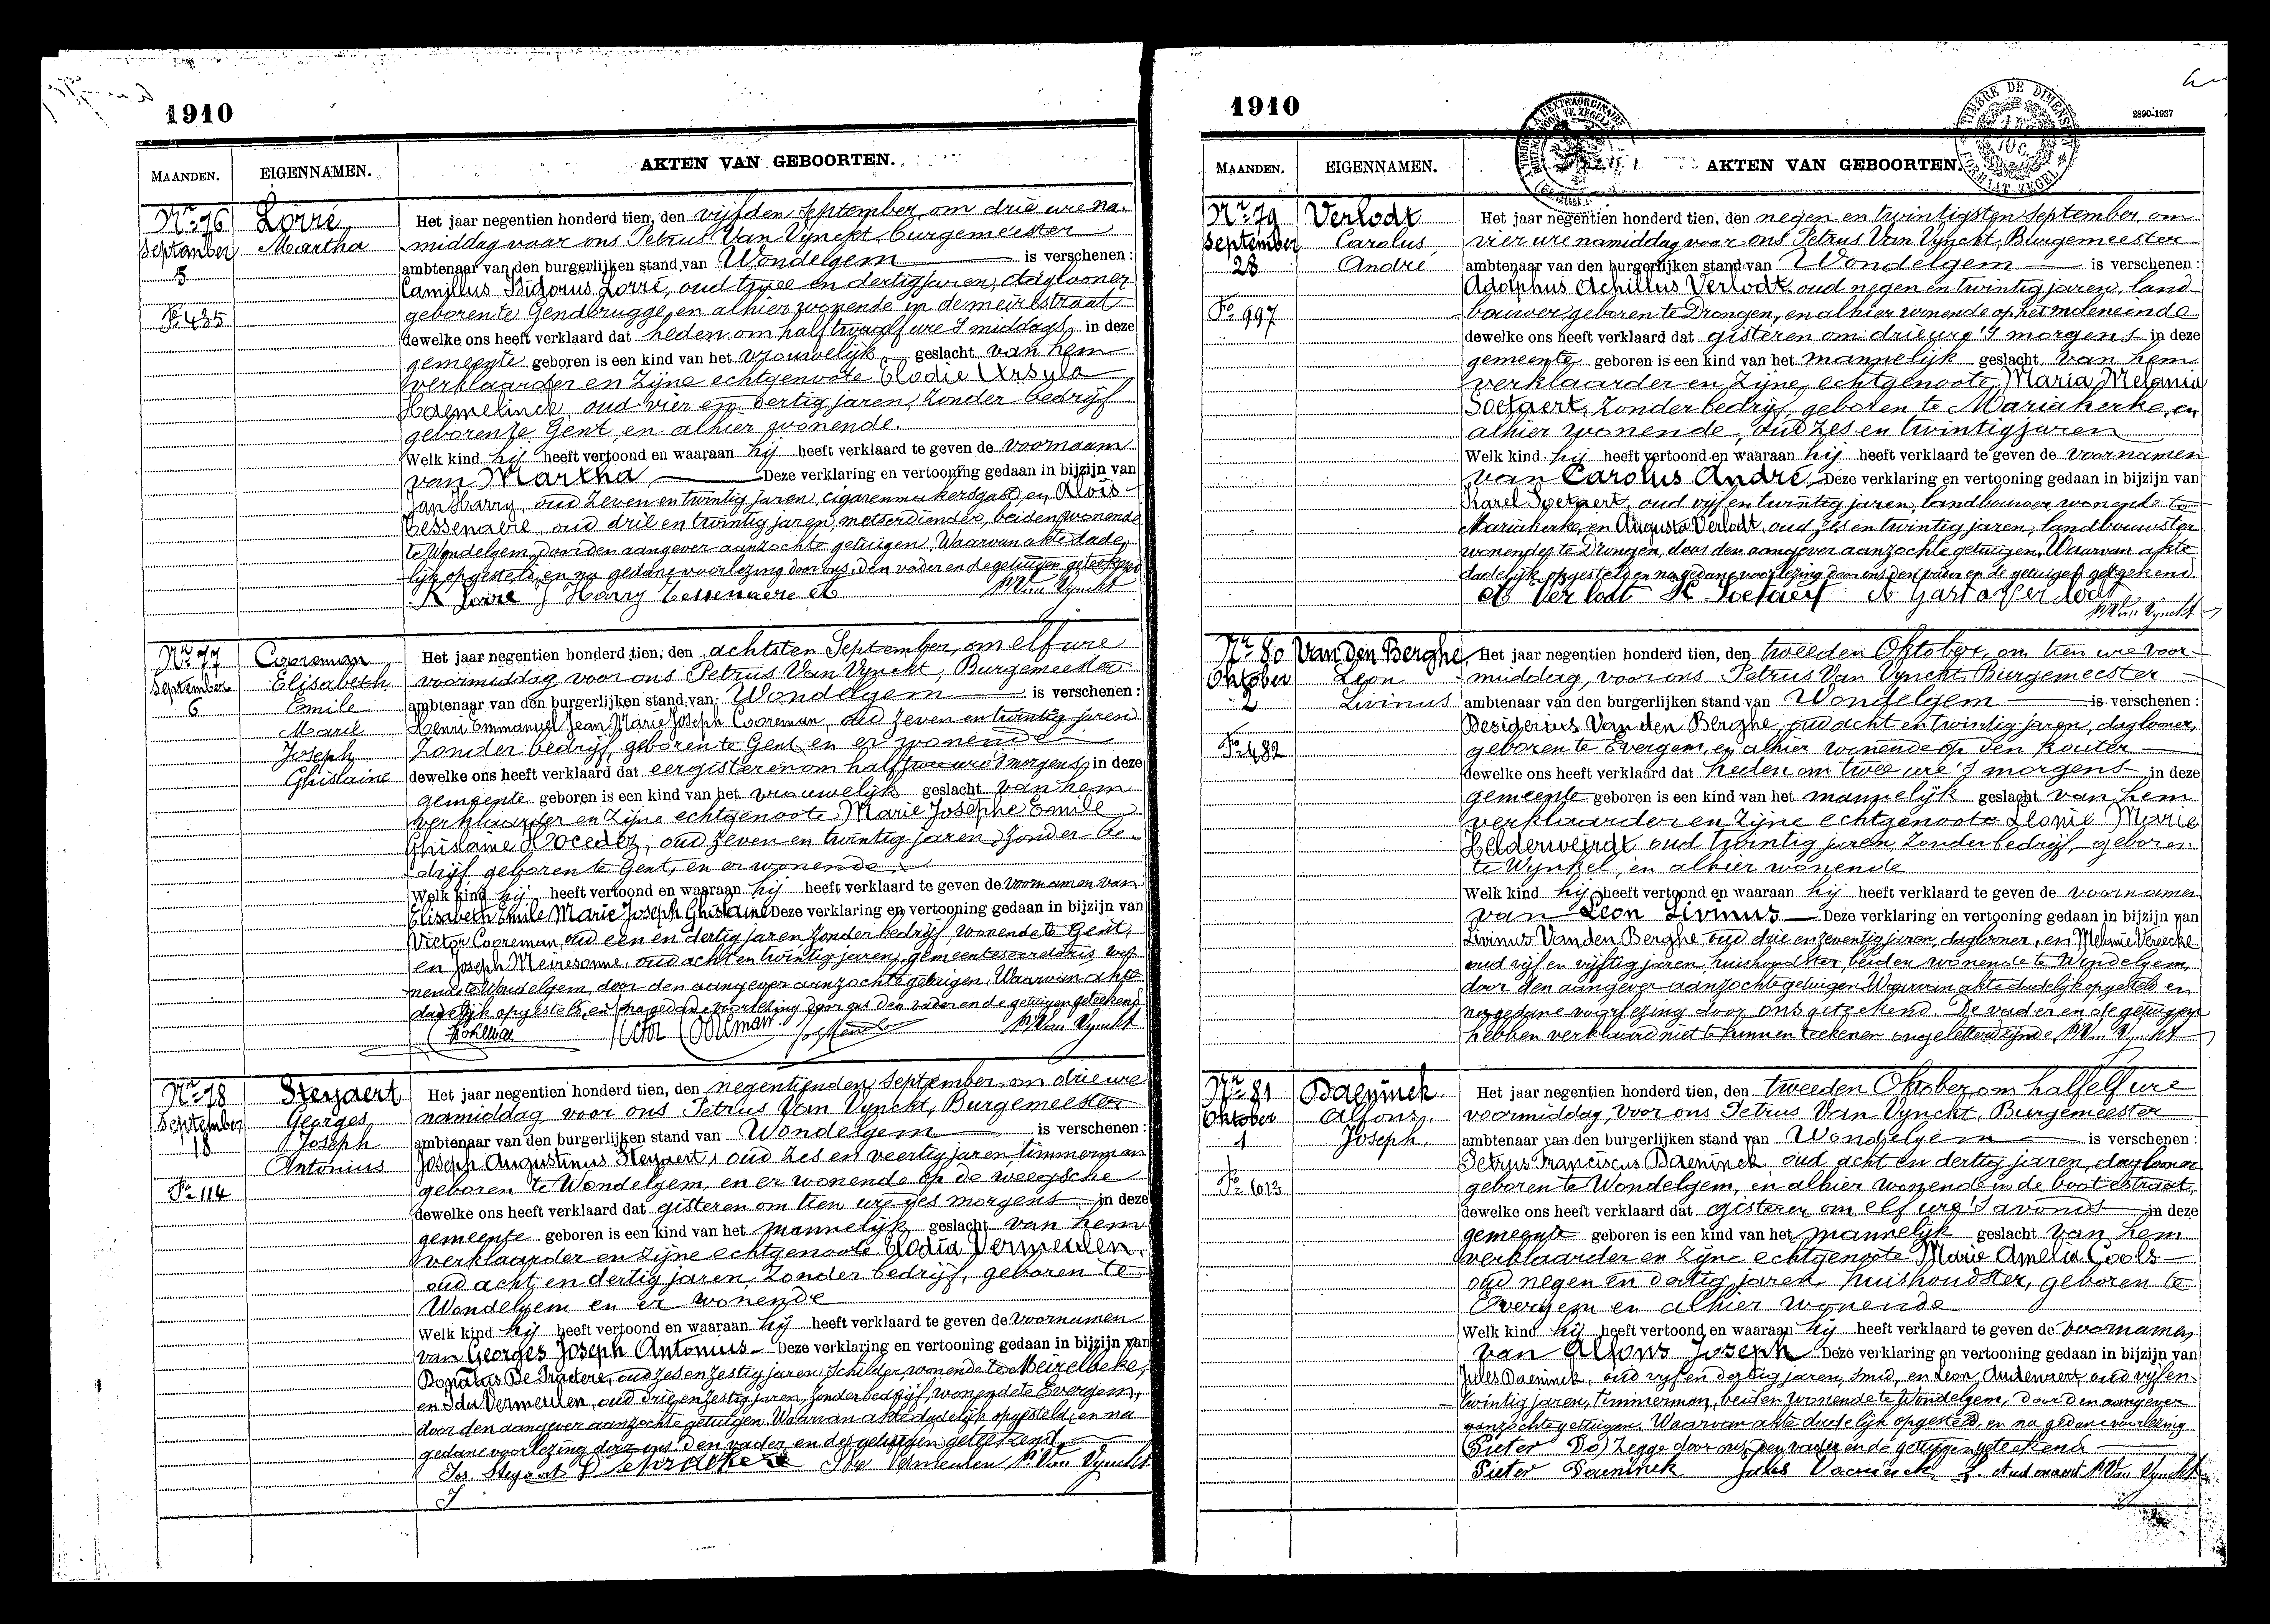 1910
MAANDEN.
EIGENNAMEN.
AKTEN VAN GEBOORTEN.
Nr 76
September
5
Fo 435
Lorré
Martha
Het jaar negentien honderd tien, den vijfden September, om drie ure na-
middag voor ons Petrus Van Vynckt, burgemeester
ambtenaar van den burgerlijken stand van Wondelgem is verschenen :
Camillus Isidorus Lorré, oud twee en dertig jaren, daglooner
geboren te Gendbrugge, en alhier wonende in de meirestraat
dewelke ons heeft verklaard dat heden om half twaalf ure 's middags in deze
gemeente geboren is een kind van het vrouwelijk geslacht van hem
verklaarder en zijne echtgenoote Elodie Ursula
Haemelinck, oud vier en dertig jaren, zonder bedrijf
geboren te Gent, en alhier wonende.
Welk kind hij heeft vertoond en waaraan hij heeft verklaard te geven de voornaam
van Martha Deze verklaring en vertooning gedaan in bijzijn van
Jan Harry, oud zeven en twintig jaren, cigarenmakersgast, en Aloïs
Cessenaere, oud drie en twintig jaren, metserdiender, beiden wonende
te Wondelgem, door den aangever aanzochte getuigen. Waarvan akte dade-
lijk opgesteld, en na gedane voorlezing door ons, den vader en de getuigen geteekend
K Lorré J Harry Cessenaere A PVan Vynckt
Nr 77
September
6
Cooreman
Elisabeth
Emile
Marie
Joseph
Ghislaine
Het jaar negentien honderd tien, den achtsten September, om elf ure
voormiddag voor ons Petrus Van Vynckt, Burgemeester
ambtenaar van den burgerlijken stand van Wondelgem is verschenen :
Henri Emmanuel Jean Marie Joseph Cooreman, oud zeven en twintig jaren
zonder bedrijf, geboren te Gent en er wonende
dewelke ons heeft verklaard dat eergisteren om half twee ure 's morgens, in deze
gemeente geboren is een kind van het vrouwelijk geslacht van hem
verklaarder en zijne echtgenoote Marie Josephe Emile
Ghislaine Hocedez, oud zeven en twintig jaren, zonder be-
drijf geboren te Gent, en er wonende
Welk kind hij heeft vertoond en waaraan hij heeft verklaard te geven de voornamen van
Elisabeth Emile Marie Joseph Ghislaine Deze verklaring en vertooning gedaan in bijzijn van
Victor Cooreman, oud een en dertig jaren zonder bedrijf, wonende te Gent,
en Joseph Meiresonne, oud acht en twintig jaren, gemeentesecretaris wo-
nende te Wondelgem, door den aangever aanzochte getuigen. Waarvan akte
dadelijk opgesteld, en na gedane voorlezing door ons den vader en de getuigen geteekend.
Victor Cooreman PVan Vynckt
Nr 78
September
18
Fo 114
Steyaert
Georges
Joseph
Antonius
Het jaar negentien honderd tien, den negentienden September, om drie ure
namiddag voor ons Petrus Van Vynckt, Burgemeester
ambtenaar van den burgerlijken stand van Wondelgem is verschenen :
Joseph Augustinus Steyaert, oud zes en veertig jaren, timmerman
geboren te Wondelgem, en er wonende op de weegsche
dewelke ons heeft verklaard dat gisteren om tien ure des morgens in deze
gemeente geboren is een kind van het mannelijk geslacht van hem
verklaarder en zijne echtgenoote Elodia Vermeulen,
oud acht en dertig jaren, zonder bedrijf, geboren te
Wondelgem en er wonende
Welk kind hij heeft vertoond en waaraan hij heeft verklaard te geven de voornamen
van Georges Joseph Antonius Deze verklaring en vertooning gedaan in bijzijn van
Donatus De oud zes en zestig jaren, schilder, wonende te Meirelbeke,
en Ida Vermeulen, oud drie en zestig jaren, zonder bedrijf, wonende te Evergem,
door den aangever aanzochte getuigen. Waarvan akte dadelijk opgesteld, en na
gedane voorlezing door ons den vader en de getuigen geteekend
Jos Steyaert Ida Vermeulen PVan Vynckt
1910
2890-1937
MAANDEN.
EIGENNAMEN.
AKTEN VAN GEBOORTEN.
TIMBRE DE DIMENSION
FORMAAT ZEGEL
Nr 79
September
28
Fo 997
Verlodt
Carolus
André
Het jaar negentien honderd tien, den negen en twintigsten September, om
vier ure namiddag voor ons Petrus Van Vynckt, Burgemeester
ambtenaar van den burgerlijken stand van Wondelgem is verschenen :
Adolphus Achillus Verlodt, oud negen en twintig jaren, land
bouwer, geboren te Drongen, en alhier wonende op het moleneinde
dewelke ons heeft verklaard dat gisteren om drie ure 's morgens in deze
gemeente geboren is een kind van het mannelijk geslacht van hem
verklaarder en zijne echtgenoote Maria Melania
Soetaert, zonder bedrijf, geboren te Mariakerke, en
alhier wonende, oud zes en twintig jaren
Welk kind hij heeft vertoond en waaraan hij heeft verklaard te geven de voornamen
van Carolus André. Deze verklaring en vertooning gedaan in bijzijn van
Karel Soetaert, oud vijf en twintig jaren, landbouwer wonende te
Mariakerke, en Augusta Verlodt, oud zes en twintig jaren, landbouwster
wonende te Drongen, door den aangever aanzochte getuigen. Waarvan akte
dadelijk opgesteld en na gedane voorlezing door ons den vader en de getuigen geteekend
A Verlodt K Soetaert A Verlodt
PVan Vynckt
Nr 80
Oktober
2
Fo 482
Van Den Berghe
Leon
Livinus
Het jaar negentien honderd tien, den tweeden Oktober, om tien ure voor-
middag, voor ons Petrus Van Vynckt, Burgemeester
ambtenaar van den burgerlijken stand van Wondelgem is verschenen :
Desiderius Van den Berghe, oud acht en twintig jaren, daglooner,
geboren te Evergem, en alhier wonende op den Kouter
dewelke ons heeft verklaard dat heden om twee ure 's morgens in deze
gemeente geboren is een kind van het mannelijk geslacht van hem
verklaarder en zijne echtgenoote Leonie Marie
Helderweirdt oud twintig jaren, zonder bedrijf, geboren
te Wynkel, en alhier wonende
Welk kind hij heeft vertoond en waaraan hij heeft verklaard te geven de voornamen
van Leon Livinus Deze verklaring en vertooning gedaan in bijzijn van
Livinus Van den Berghe, oud drie en zeventig jaren, daglooner, en Melanie Vereecke
oud vijf en vijftig jaren, huishoudster, beiden wonende te Wondelgem,
door den aangever aanzochte getuigen. Waarvan akte dadelijk opgesteld en
na gedane voorlezing door ons geteekend. De vader en de getuigen
hebben verklaard niet te kunnen teekenen ongeletterd zijnde, PVan Vynckt
Nr 81
Oktober
1
Fo 1013
Daeninck
Alfons
Joseph.
Het jaar negentien honderd tien, den tweeden Oktober, om half elf ure
voormiddag, voor ons Petrus Van Vynckt, Burgemeester
ambtenaar van den burgerlijken stand van Wondelgem is verschenen :
Petrus Franciscus Daeninck, oud acht en dertig jaren, daglooner
geboren te Wondelgem, en alhier wonende in de bootestraat,
dewelke ons heeft verklaard dat gisteren om elf ure 's avonds in deze
gemeente geboren is een kind van het mannelijk geslacht van hem
verklaarder en zijne echtgenoote Marie Amelia Cools
oud negen en dertig jaren, huishoudster, geboren te
Evergem en alhier wonende
Welk kind hij heeft vertoond en waaraan hij heeft verklaard te geven de voornamen
van Alfons Joseph Deze verklaring en vertooning gedaan in bijzijn van
Jules Daeninck, oud vijf en dertig jaren, smid, en Leon Audenaert, oud vijf en
twintig jaren, timmerman, beiden wonende te Wondelgem, door den aangever
aanzochte getuigen. Waarvan akte dadelijk opgesteld, en na gedane voorlezing
(Pieter Da) zegge door ons, den vader en de getuigen geteekend
Pieter Daeninck Jules Daeninck L. Audenaert PVan Vynckt